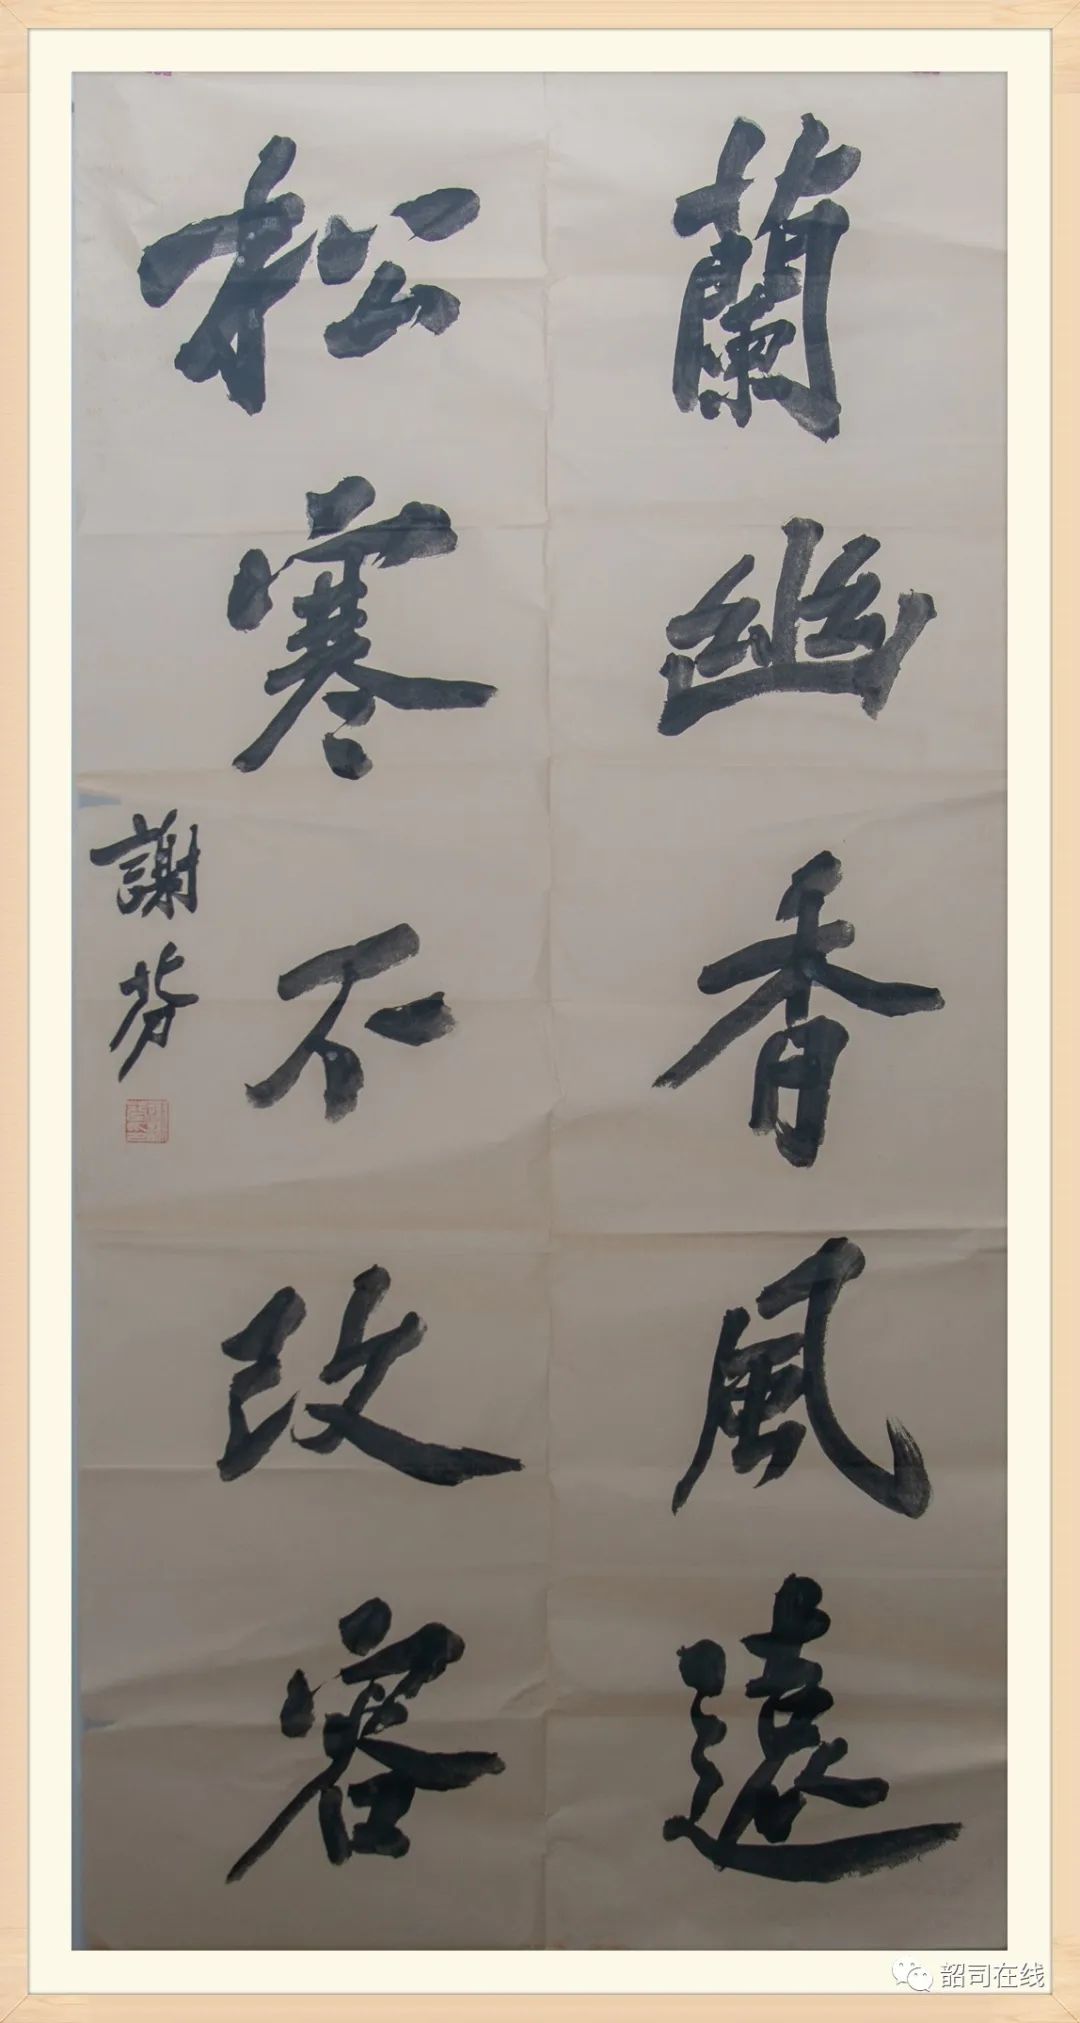 蘭幽香風遠
松寒不改容
謝芬
韶司在线